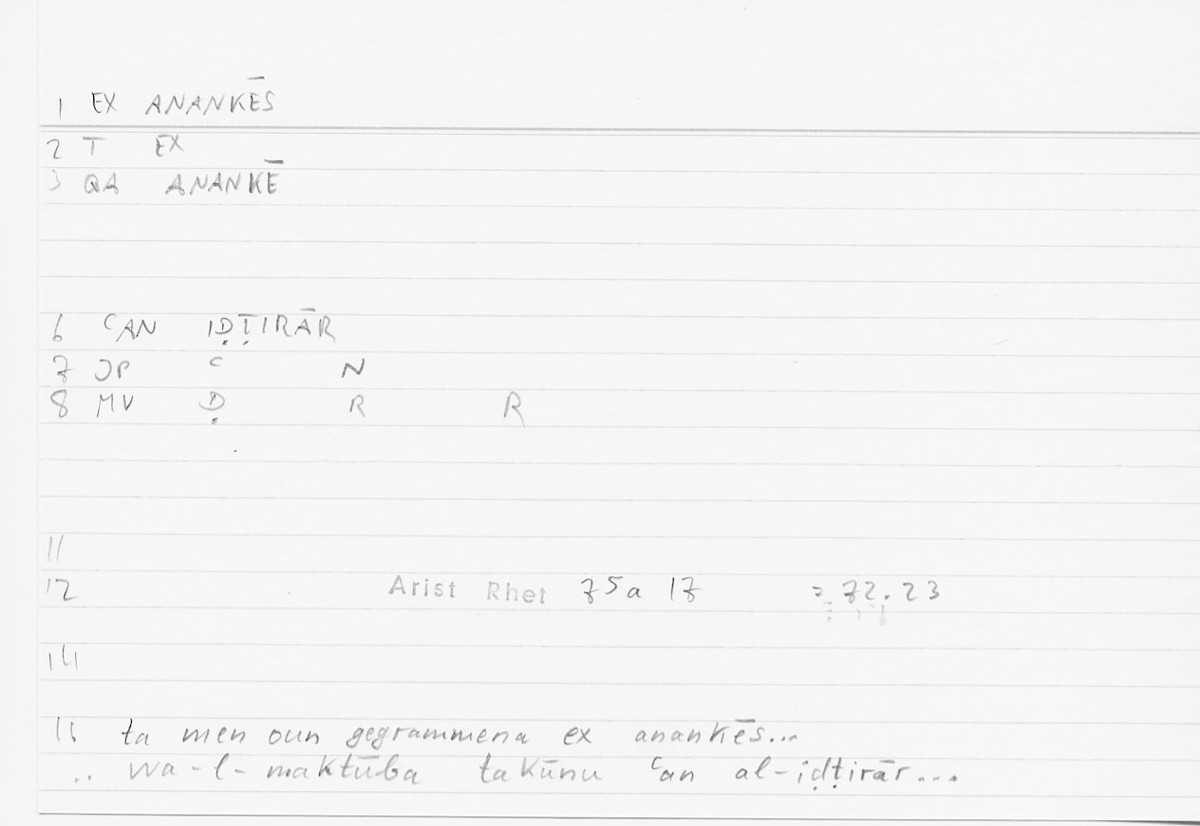 1 EX ANANKĒS
2 T EX
3 QA ANANKĒ
6 ʿAN IḌṬIRĀR
7 JP ʿ N
8 MV Ḍ R R
11
12 Arist Rhet 75a 17 = 72.23
14
15 ta men oun gegrammena ex anankēs...
.. wa-l-maktūba takūnu ʿan al-iḍṭirār...